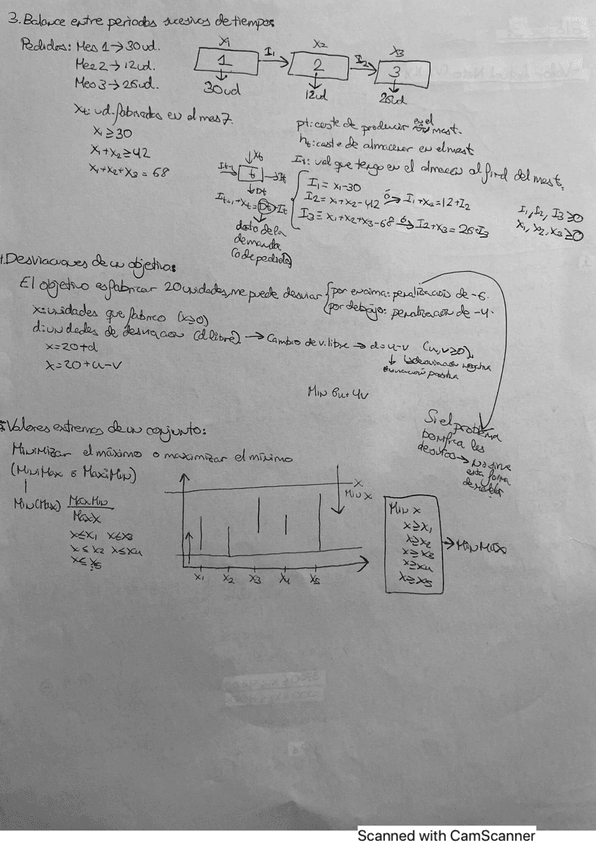 3. Balance entre periodos sucesivos de tiempo:
Pedidos: Mes 1 → 30 ud.
Mes 2 → 12 ud.
Mes 3 → 26 ud.
X1 X2 X3
1 I1 2 I2 3
30 ud 12 ud 26 ud
Xt: ud. fabricadas en el mes t.
X1 ≥ 30
X1 + X2 ≥ 42
X1 + X2 + X3 = 68
pt: coste de producir en el mes t.
ht: coste de almacenar en el mes t
It: ud que tengo en el almacen al final del mes t.
Xt
It-1 → t → It
Dt
It-1 + Xt = Dt + It
dato de la
demanda
(o de pedidos)
I1 = X1 - 30
I2 = X1 + X2 - 42 ó I1 + X2 = 12 + I2
I3 = X1 + X2 + X3 - 68 ó I2 + X3 = 26 + I3
I1, I2, I3 ≥ 0
X1, X2, X3 ≥ 0
4. Desviaciones de un objetivo:
El objetivo es fabricar 20 unidades, me puede desviar
por encima: penalización de -6.
por debajo: penalización de -4.
X: unidades que fabrico (X ≥ 0)
d: unidades de desviación (d libre) → Cambio de v. libre → d = u - v (u, v ≥ 0)
desviación negativa
desviación positiva
X = 20 + d
X = 20 + u - v
Min 6u + 4v
Si el problema
bonifica las
desvíos → No sirve
esta forma
de modelar
5. Valores extremos de un conjunto:
Minimizar el máximo o maximizar el mínimo
(MiniMax o MaxiMin)
Min(Max)
Max Min
Max X
X ≤ X1 X ≤ X3
X ≤ X2 X ≤ X4
X ≤ X5
X
Min X
X1 X2 X3 X4 X5
Min X
X ≥ X1
X ≥ X2
X ≥ X3
X ≥ X4
X ≥ X5
→ MINMAX
Scanned with CamScanner